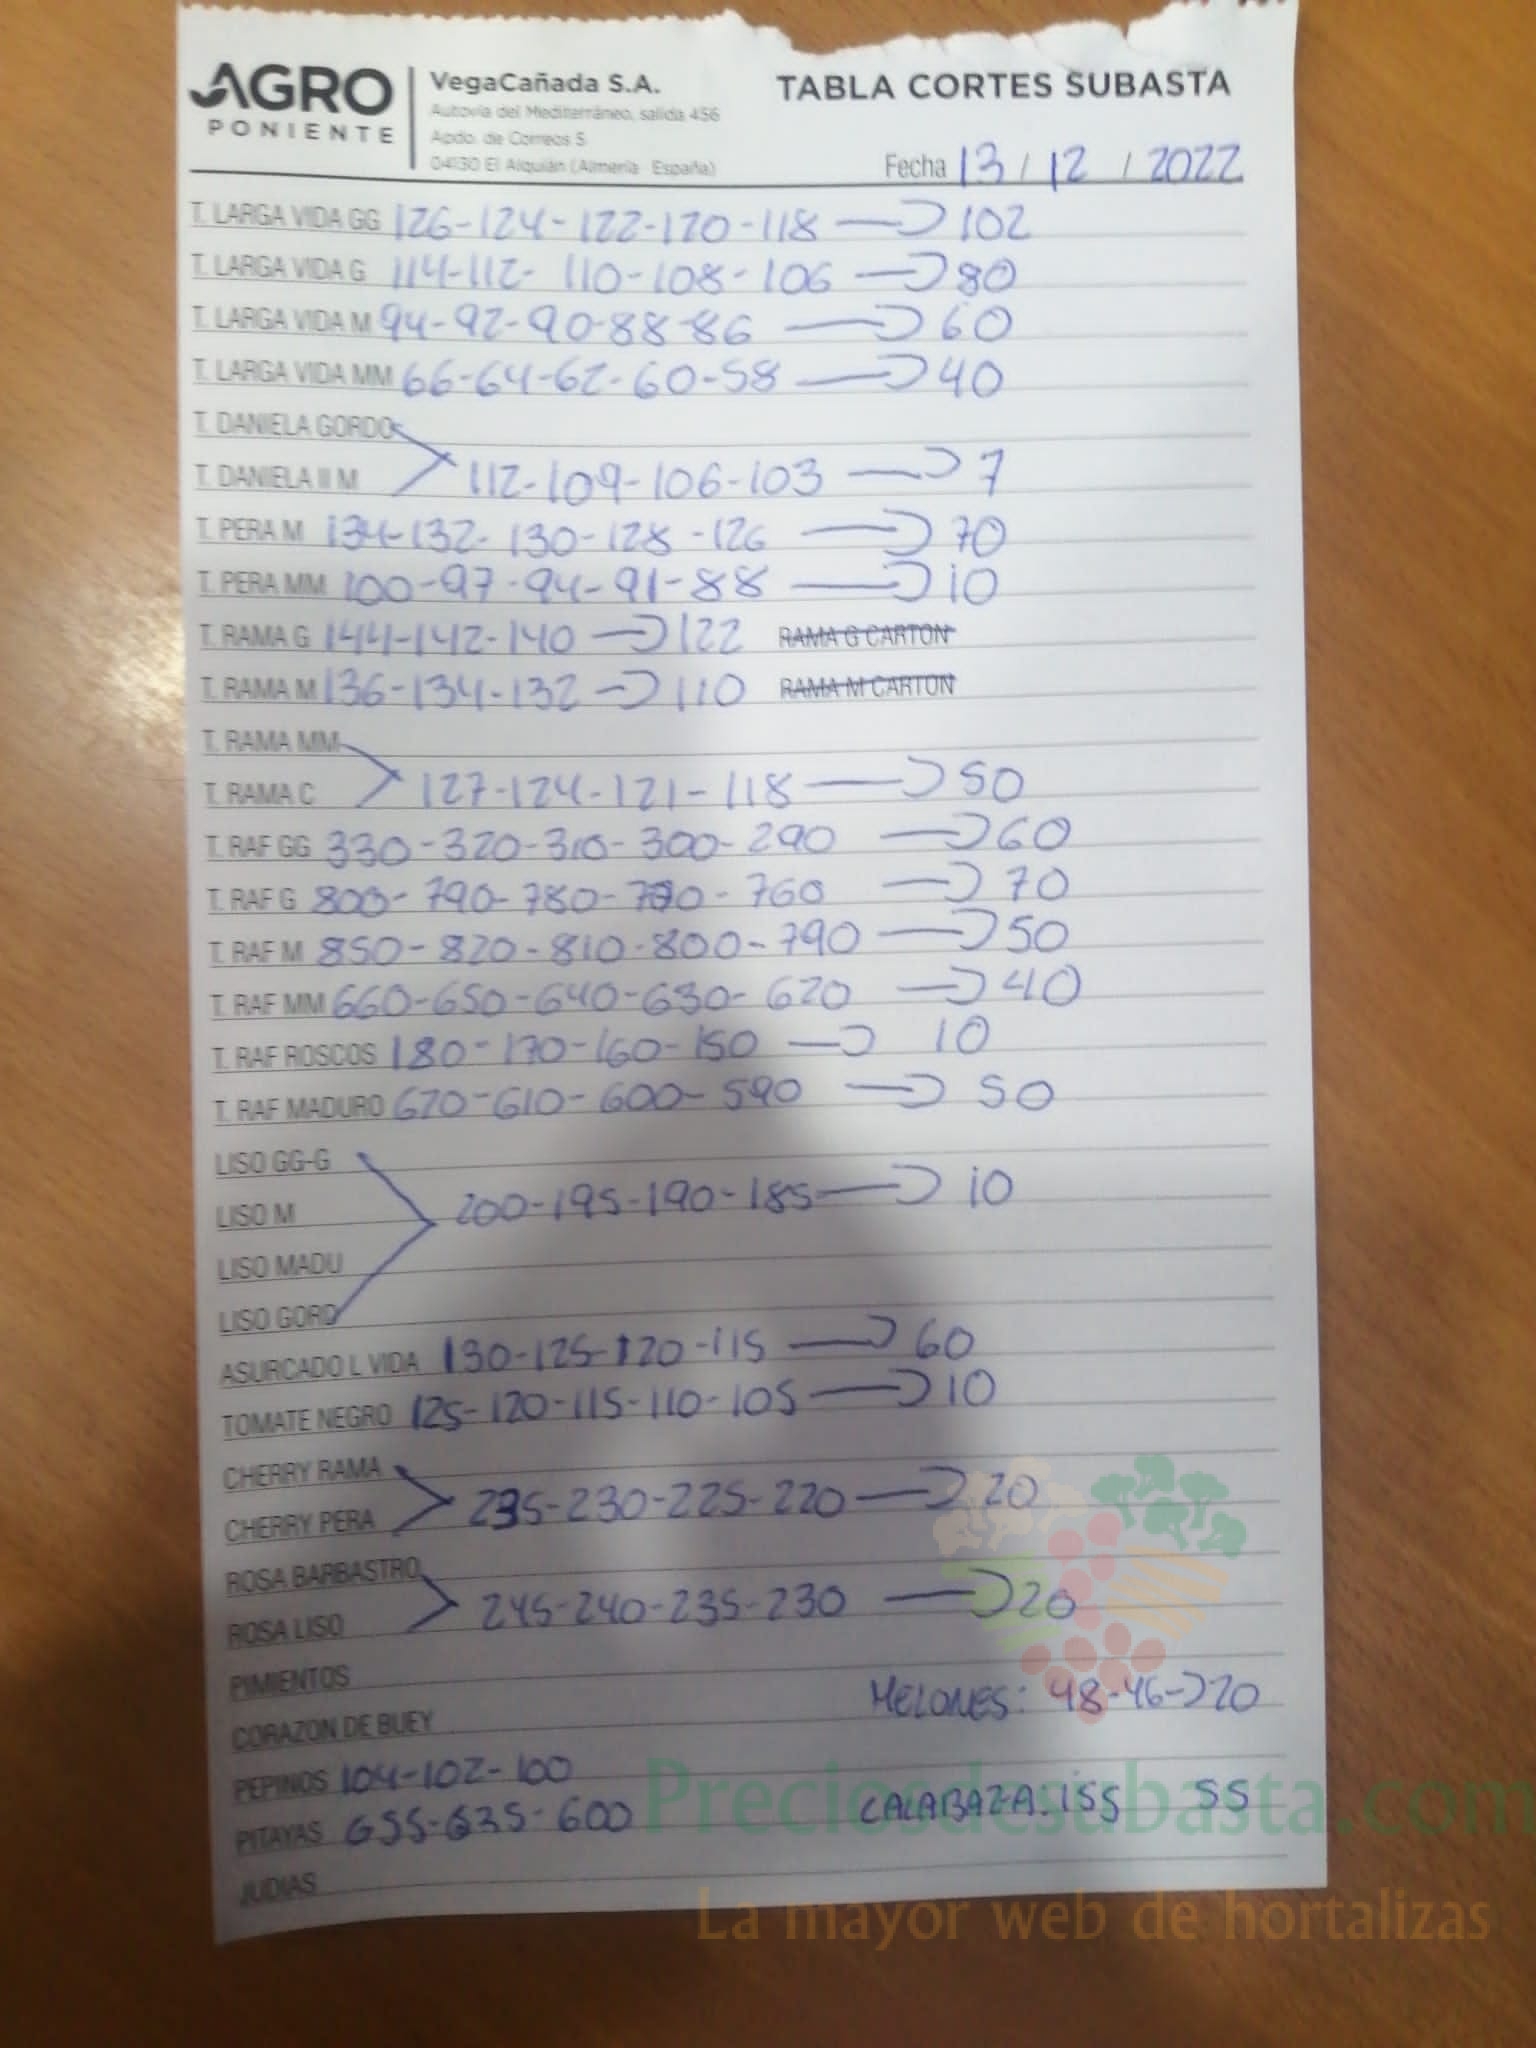 AGRO PONIENTE
VegaCañada S.A.
Autovía del Mediterráneo, salida 456
Apdo. de Correos 5
04130 El Alquián (Almería España)
TABLA CORTES SUBASTA
Fecha 13 / 12 / 2022
T. LARGA VIDA GG 126-124-122-120-118 → 102
T. LARGA VIDA G 114-112-110-108-106 → 80
T. LARGA VIDA M 94-92-90-88-86 → 60
T. LARGA VIDA MM 66-64-62-60-58 → 40
T. DANIELA GORDO
T. DANIELA II M 112-109-106-103 → 7
T. PERA M 134-132-130-128-126 → 70
T. PERA MM 100-97-94-91-88 → 10
T. RAMA G 144-142-140 → 122 RAMA G CARTON
T. RAMA M 136-134-132 → 110 RAMA M CARTON
T. RAMA MM
T. RAMA C 127-124-121-118 → 50
T. RAF GG 330-320-310-300-290 → 60
T. RAF G 800-790-780-770-760 → 70
T. RAF M 850-820-810-800-790 → 50
T. RAF MM 660-650-640-630-620 → 40
T. RAF ROSCOS 180-170-160-150 → 10
T. RAF MADURO 620-610-600-590 → 50
LISO GG-G
LISO M 200-195-190-185 → 10
LISO MADU
LISO GORD
ASURCADO L VIDA 130-125-120-115 → 60
TOMATE NEGRO 125-120-115-110-105 → 10
CHERRY RAMA
CHERRY PERA 235-230-225-220 → 20
ROSA BARBASTRO
ROSA LISO 245-240-235-230 → 20
PIMIENTOS
MELONES: 48-46 → 20
CORAZON DE BUEY
PEPINOS 104-102-100
PITAYAS 655-635-600
CALABAZA: 155 55
JUDIAS
Preciosdesubasta.com
La mayor web de hortalizas